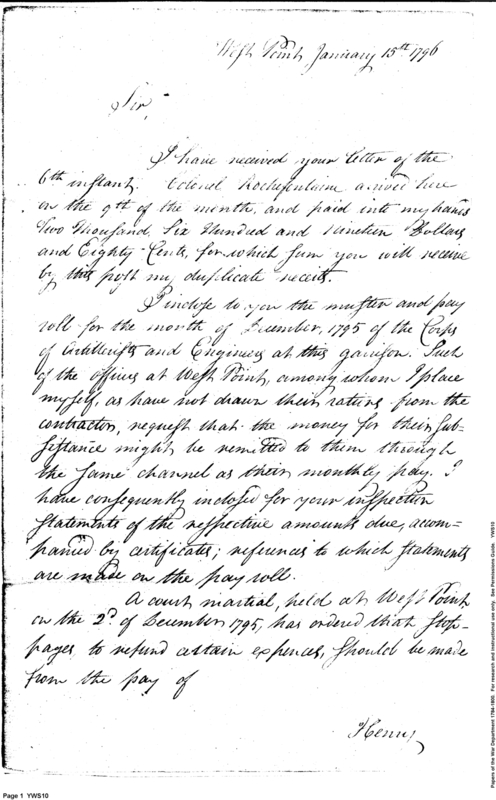 West Point January 15th 1796
Sir,
I have received your letter of the
6th instant. Colonel Rochefontaine arrived here
on the 9th of the month, and paid into my hands
Two Thousand, Six Hundred and Nineteen Dollars
and Eighty Cents, for which sum you will receive
by this post my duplicate receits.
I inclose to you the muster and pay
roll for the month of December, 1795 of the Corps
of Artillerists and Engineers at this garrison. Such
of the officers at West Point, among whom I place
myself, as have not drawn their rations from the
contractor, request that the money for their Sub-
sistance might be remitted to them through
the same channel as their monthly pay. I
have consequently inclosed for your inspection
statements of the respective amounts due, accom-
panied by certificates; references to which statements
are made on the pay roll.
A court martial, held at West Point
on the 2d. of December 1795, has ordered that stop-
pages, to refund certain expences, should be made
from the pay of
Henry
Page 1 YWS10
Papers of the War Department 1784-1800. For research and instructional use only. See Permissions Guide. YWS10